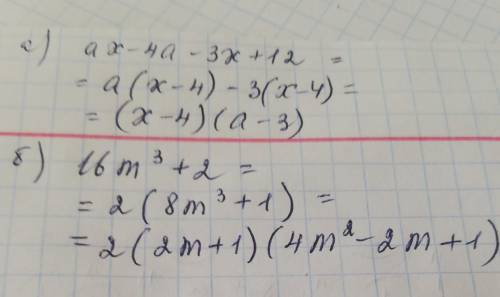 а) ax-4a-3x+12 =
= a(x-4)-3(x-4)=
= (x-4)(a-3)
б) 16m³+2 =
= 2(8m³+1) =
= 2(2m+1)(4m²-2m+1)